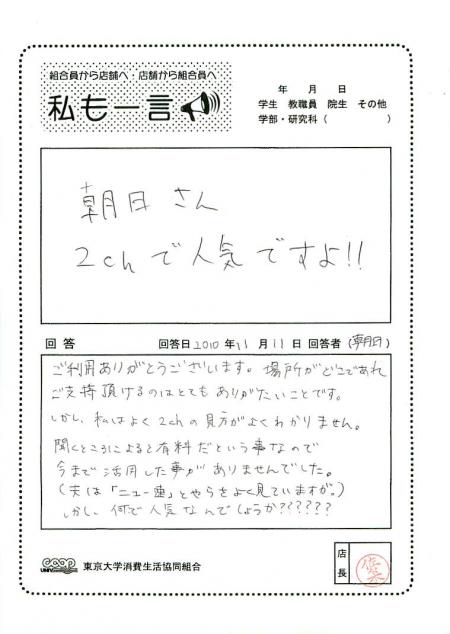 組合員から店舗へ・店舗から組合員へ
私も一言
年 月 日
学生 教職員 院生 その他
学部・研究科( )
朝日さん
2chで人気ですよ!!
回答
回答日2010年11月11日 回答者(朝日)
ご利用ありがとうございます。場所がどこであれ
ご支持頂けるのはとてもありがたいことです。
しかし、私はよく2chの見方がよくわかりません。
聞くところによると有料だという事なので
今まで活用した事がありませんでした。
(夫は「ニュー速」とやらをよく見ていますが。)
しかし、何で人気なんでしょうか??????
coop
東京大学消費生活協同組合
店長